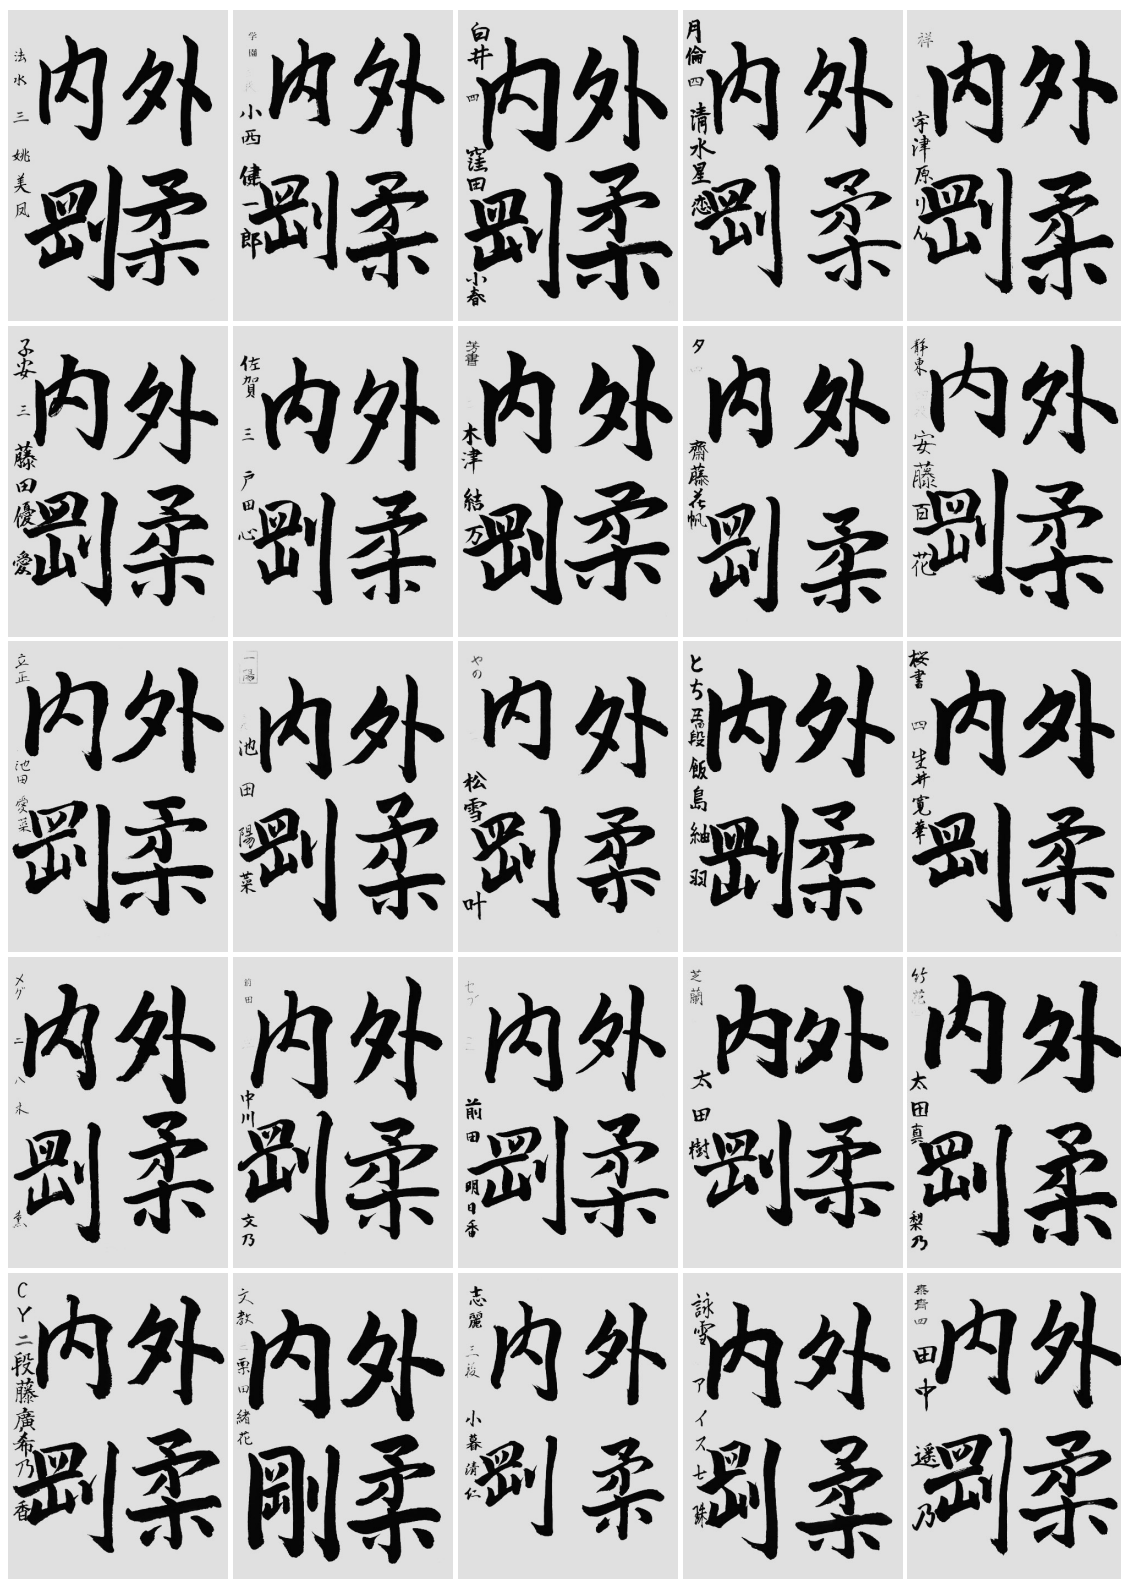 外柔
内剛
法水 三 姚美凤
外柔
内剛
学園 小西 健一郎
外柔
内剛
白井 四 窪田 小春
外柔
内剛
月倫 四 清水星恋
外柔
内剛
祥 宇津原りん
外柔
内剛
子安 三 藤田優愛
外柔
内剛
佐賀 三 戸田心
外柔
内剛
芳書 木津 結万
外柔
内剛
夕 齋藤花帆
外柔
内剛
静東 安藤百花
外柔
内剛
立正 池田愛菜
外柔
内剛
一陽 池田陽菜
外柔
内剛
やの 松雪 叶
外柔
内剛
とち 段 飯島紬羽
外柔
内剛
桜書 四 生井寛華
外柔
内剛
メグ 二 八木 薫
外柔
内剛
前田 中川 文乃
外柔
内剛
セブ 三 前田 明日香
外柔
内剛
芝蘭 太田樹
外柔
内剛
竹花 太田真梨乃
外柔
内剛
CY二段藤廣希乃香
外柔
内剛
文教 二 栗田緒花
外柔
内剛
志麗 三段 小暮清仁
外柔
内剛
詠雪 アイス七珠
外柔
内剛
四 田中 遥乃